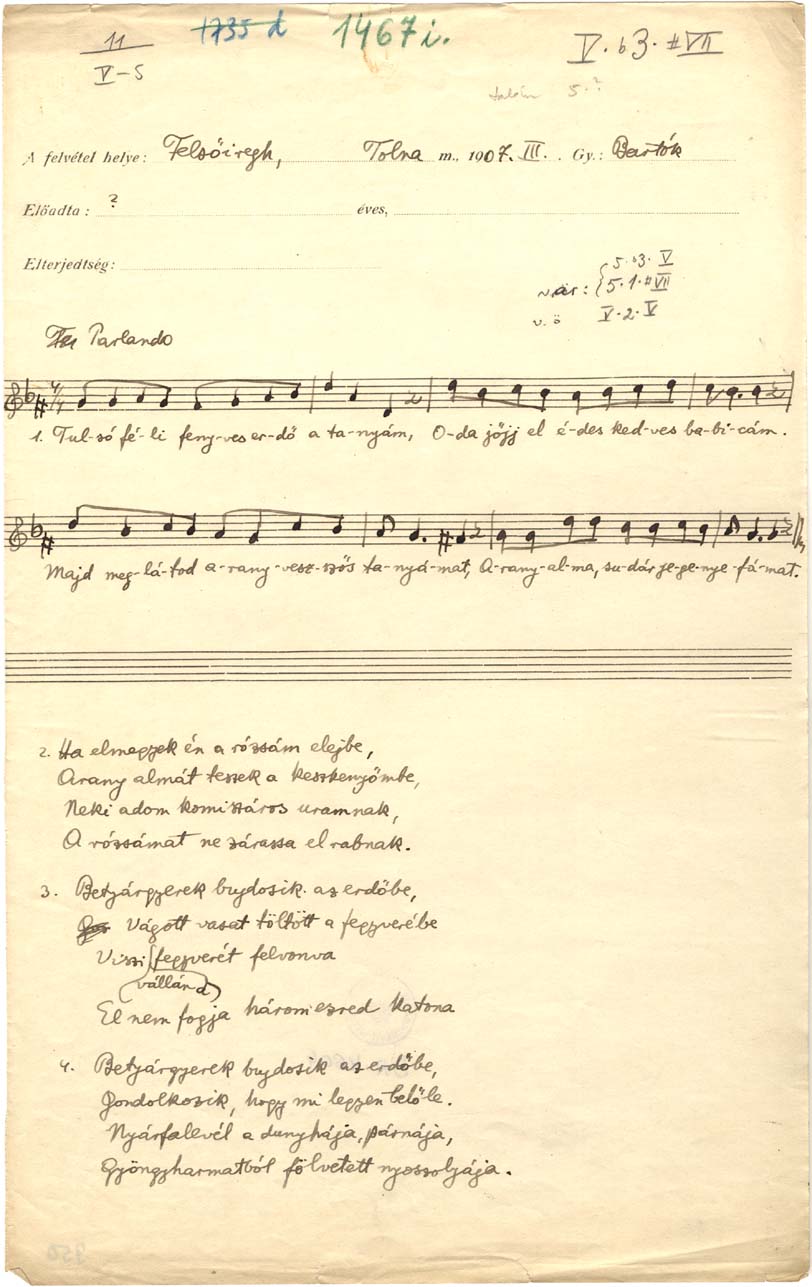 11
V-5
1735 d
1467 i.
V. b3. #VII
talán 5.?
A felvétel helye: Felsőiregh, Tolna m., 1907. III. Gy.: Bartók
Előadta: ? éves,
Elterjedtség:
5. b3. V
v.ár: 5. 1. #VII
v. ö V. 2. V
Parlando
1. Tul-só fé-li feny-ves er-dő a ta-nyám, O-da jöjj el é-des ked-ves ba-bi-cám.
Majd meg-lá-tod a-rany-vesz-szős ta-nyá-mat, A-rany-al-ma, su-dár je-ge-nye-fá-mat.
2. Ha elmegyek én a rózsám elejbe,
Arany almát teszek a keszkenyőmbe,
Neki adom komiszáros uramnak,
A rózsámat ne zárassa el rabnak.
3. Betyárgyerek bujdosik az erdőbe,
Vágott vasat töltött a fegyverébe
Viszi fegyverét felvonva
(vállán d)
El nem fogja három ezred katona
4. Betyárgyerek bujdosik az erdőbe,
Gondolkozik, hogy mi legyen belőle.
Nyárfalevél a dunyhája, párnája,
Gyöngyharmatból fölvetett nyoszolyája.
950